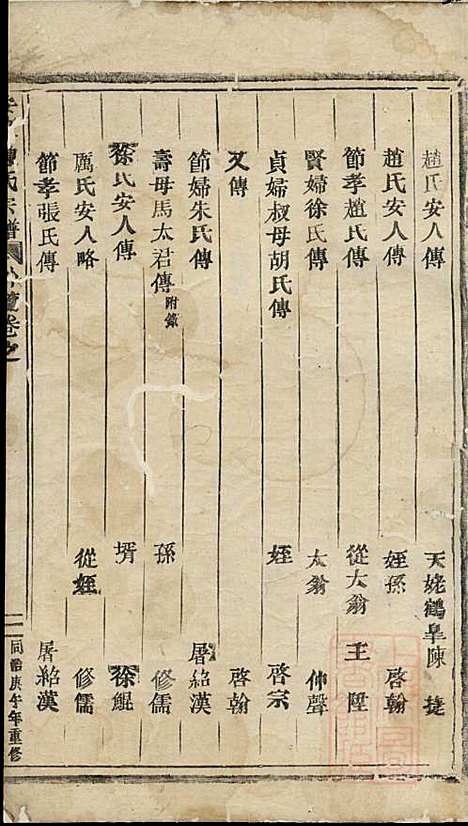 趙氏安人傳 天姥鶴皐陳 捷
趙氏安人傳 姪孫 啓翰
節孝趙氏傳 從大翁 王 陞
賢婦徐氏傳 太翁 仲聲
貞婦叔母胡氏傳 姪 啓宗
又傳 啓翰
節婦朱氏傳 屠紹漢
壽母馬太君傳 附錄 孫 修儒
徐氏安人傳 壻 徐鯤
厲氏安人略 從姪 修儒
節孝張氏傳 屠紹漢
氏宗譜 卷之 一 同治庚午年重修